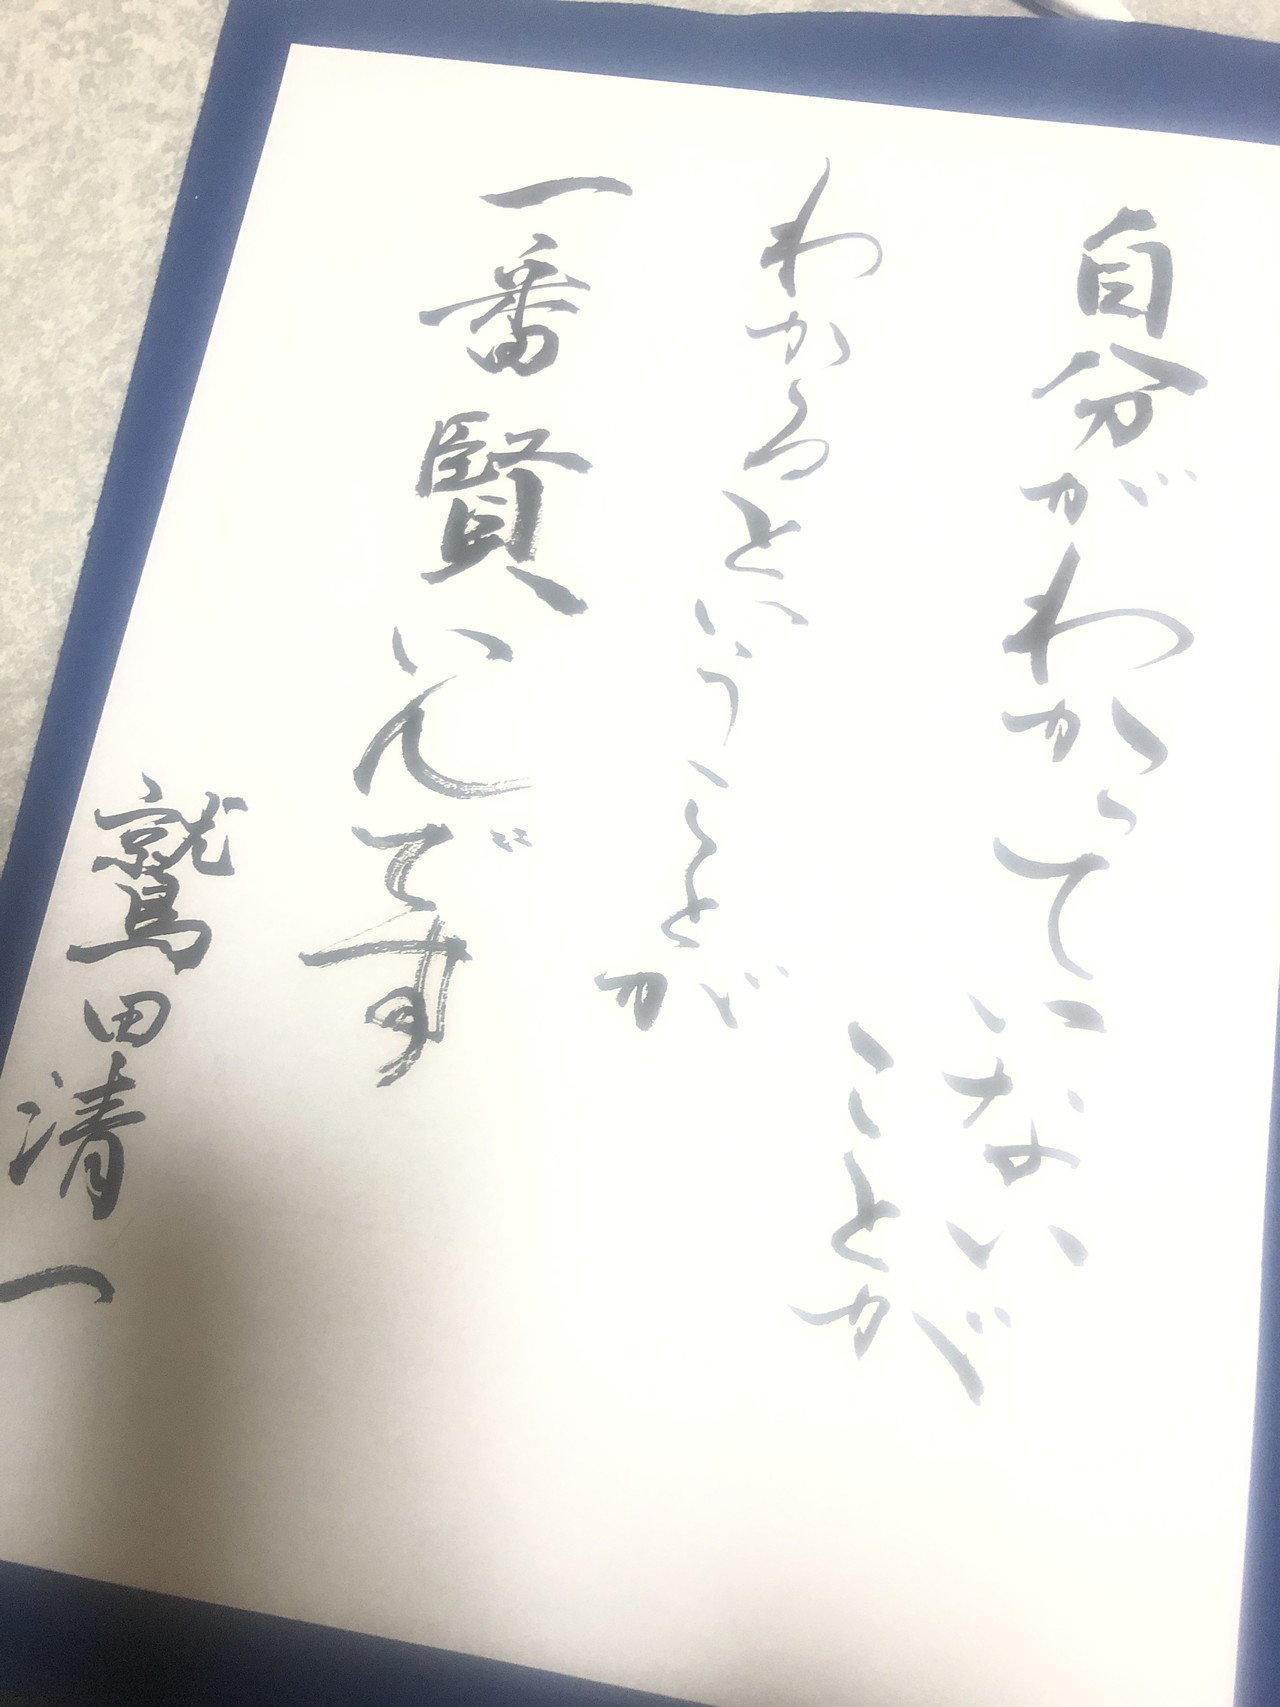 自分がわかっていない
ことが
わかるということが
一番賢いんです
鷲田清一